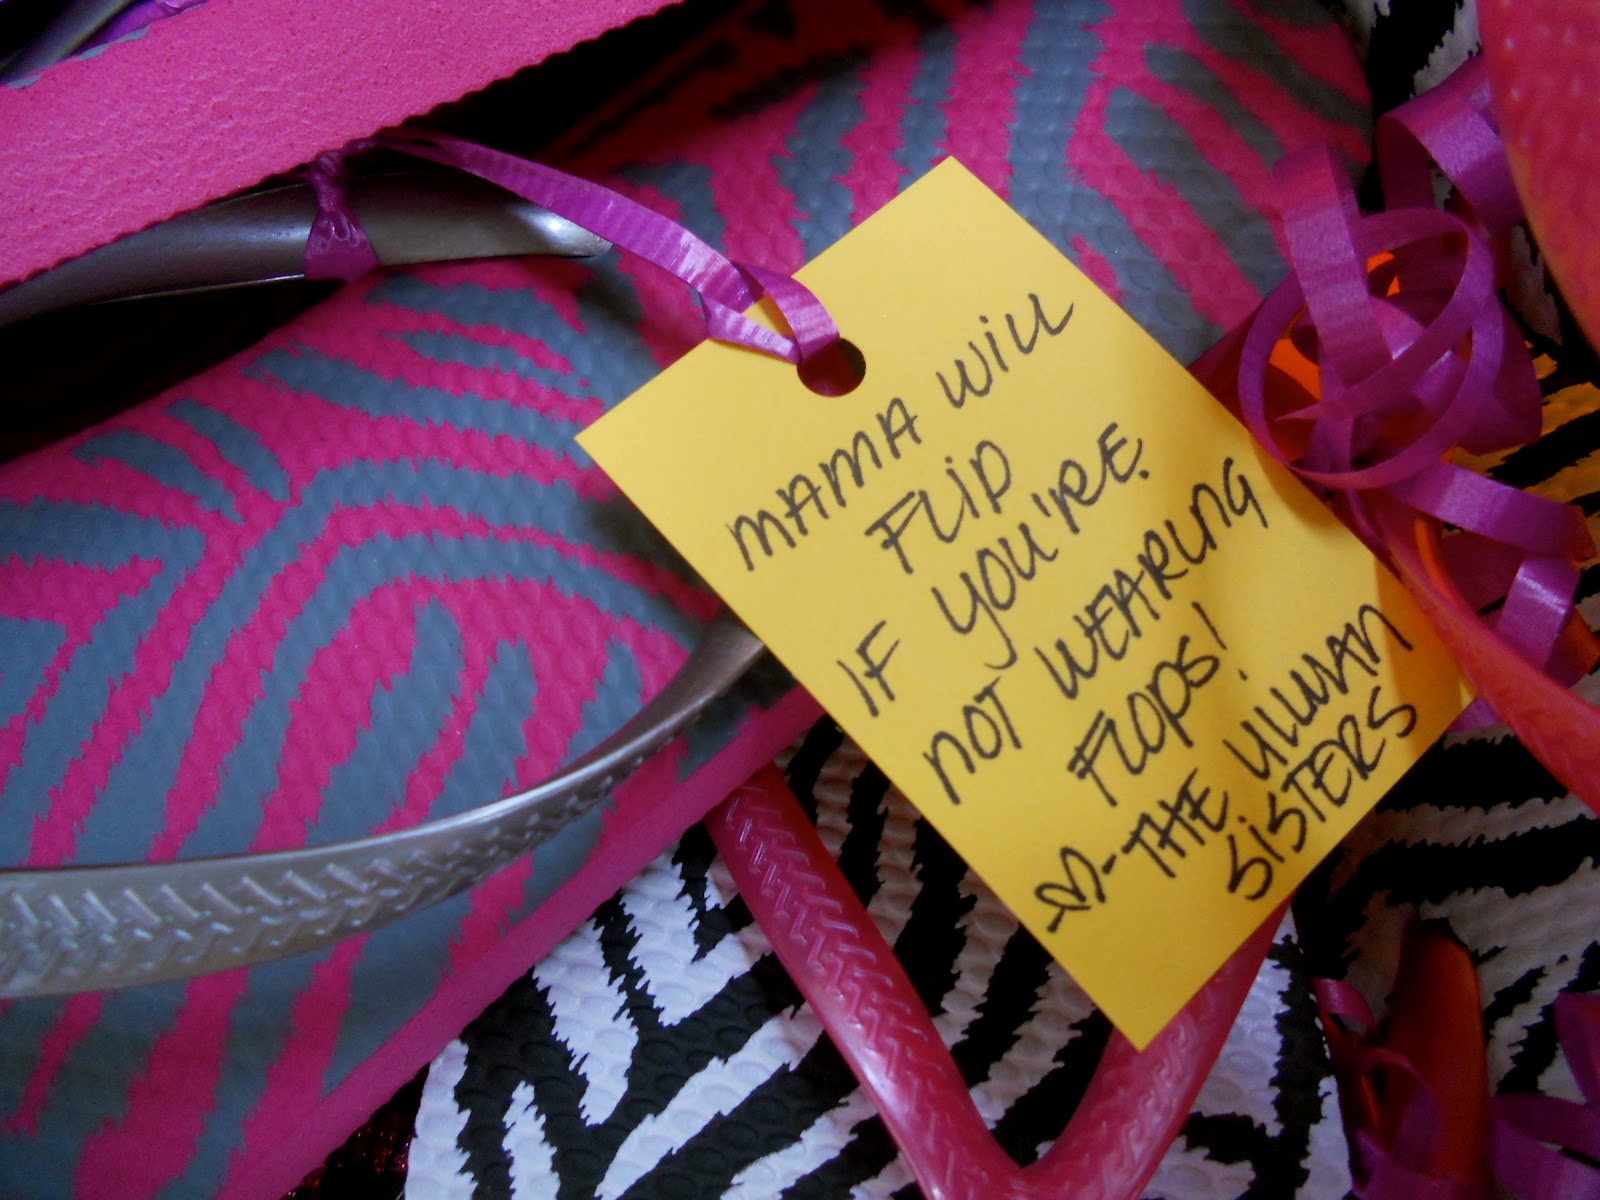 MAMA WILL
FLIP
IF YOU'RE
NOT WEARING
FLOPS!
-THE ULLMAN
SISTERS